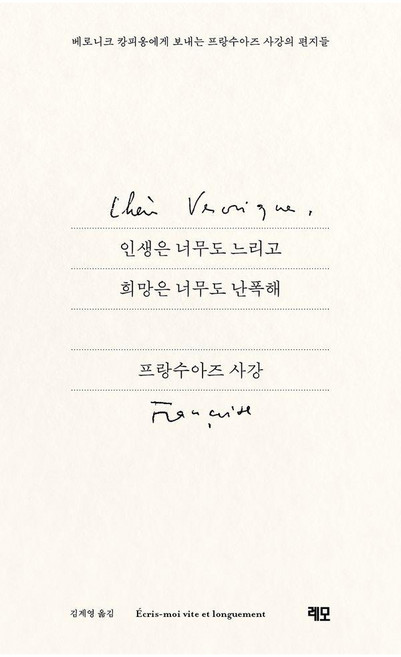 베로니크 캉피옹에게 보내는 프랑수아즈 사강의 편지들
Chère Véronique,
인생은 너무도 느리고
희망은 너무도 난폭해
프랑수아즈 사강
Françoise
김계영 옮김 Écris-moi vite et longuement 레모